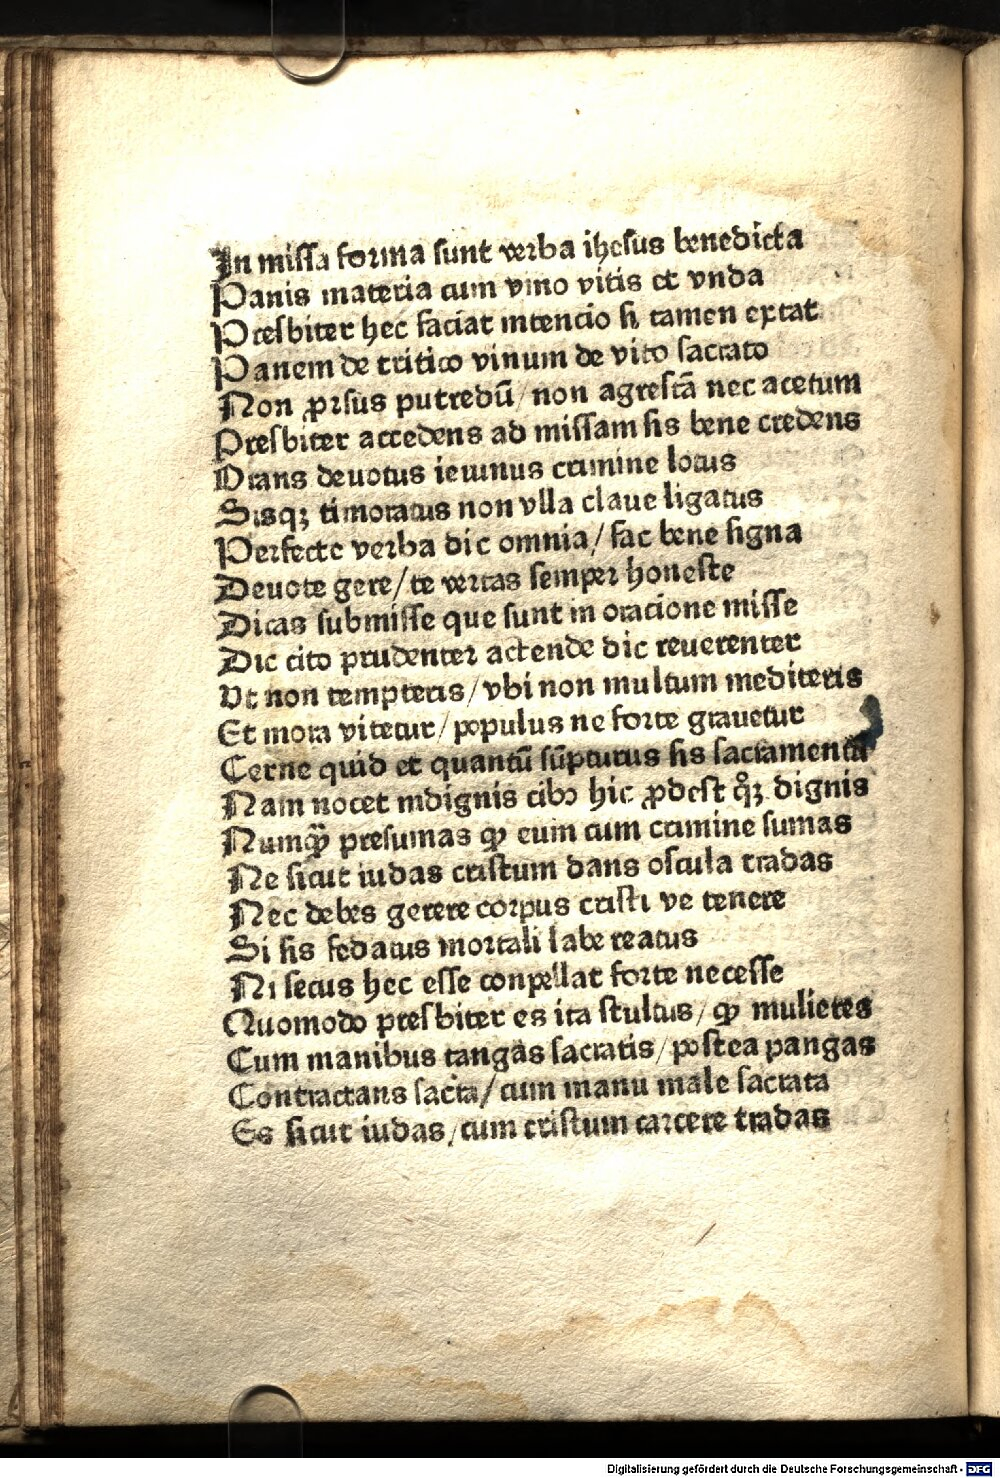 In missa forma sunt verba ihesus benedicta
Panis materia cum vino vitis et vnda
Presbiter hec faciat intencio si tamen extat
Panem de tritico vinum de vito sacrato
Non ꝓrsus putredū/non agrestā nec acetum
Presbiter accedens ad missam sis bene credens
Orans deuotus ieiunus crimine lotus
Sisqꝫ timoratus non vlla claue ligatus
Perfecte verba dic omnia/fac bene signa
Deuote gere/te vertas semper honeste
Dicas submisse que sunt in oracione misse
Dic cito prudenter actende dic reuerenter
Vt non tempteris/vbi non multum mediteris
Et mora vitetur/populus ne forte grauetur
Cerne quid et quantū sūpturus sis sacramentū
Nam nocet indignis cibo hic ꝓdest qͦꝫ dignis
Numqͣꝫ presumas ꝙ eum cum crimine sumas
Ne sicut iudas cristum dans oscula tradas
Nec debes gerere corpus cristi ve tenere
Si sis fedatus mortali labe reatus
Ni secus hec esse conpellat forte necesse
Quomodo presbiter es ita stultus/ꝙ mulieres
Cum manibus tangas sacratis/postea pangas
Contractans sacra/cum manu male sacrata
Es sicut iudas/cum cristum carcere tradas
Digitalisierung gefördert durch die Deutsche Forschungsgemeinschaft - DFG